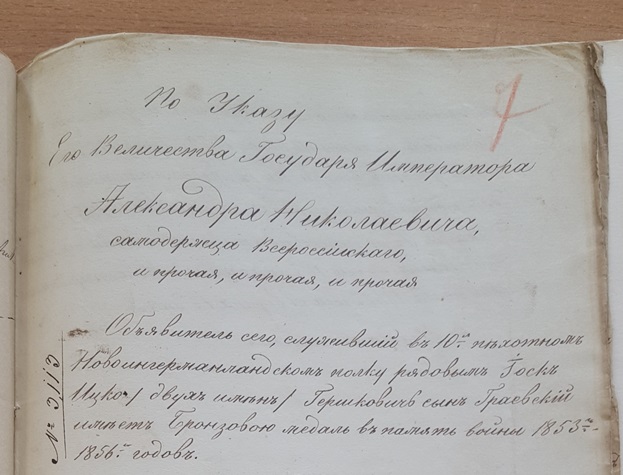 По Указу
7
Его Величества Государя Императора
Александра Николаевича,
самодержца Всероссійскаго,
и прочая, и прочая, и прочая
Объявитель сего, служившій въ 10мъ пѣхотномъ
Новоингерманландскомъ полку рядовымъ Іоскъ
Ицко / двухъ именъ / Гершковичъ сынъ Граевскій
имѣетъ Бронзовою медаль въ память войны 1853го-
1856го годовъ.
№ 3113